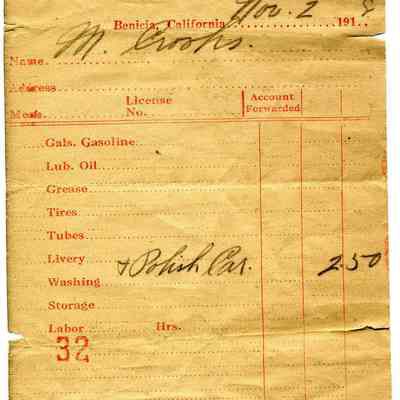 Benicia, California Nov. 2 191
Name. M. Crooks.
Address
License Account
No. Forwarded
Gals. Gasoline
Lub. Oil
Grease
Tires
Tubes
Livery
& Polish Car. 2.50
Washing
Storage
Labor Hrs.
32